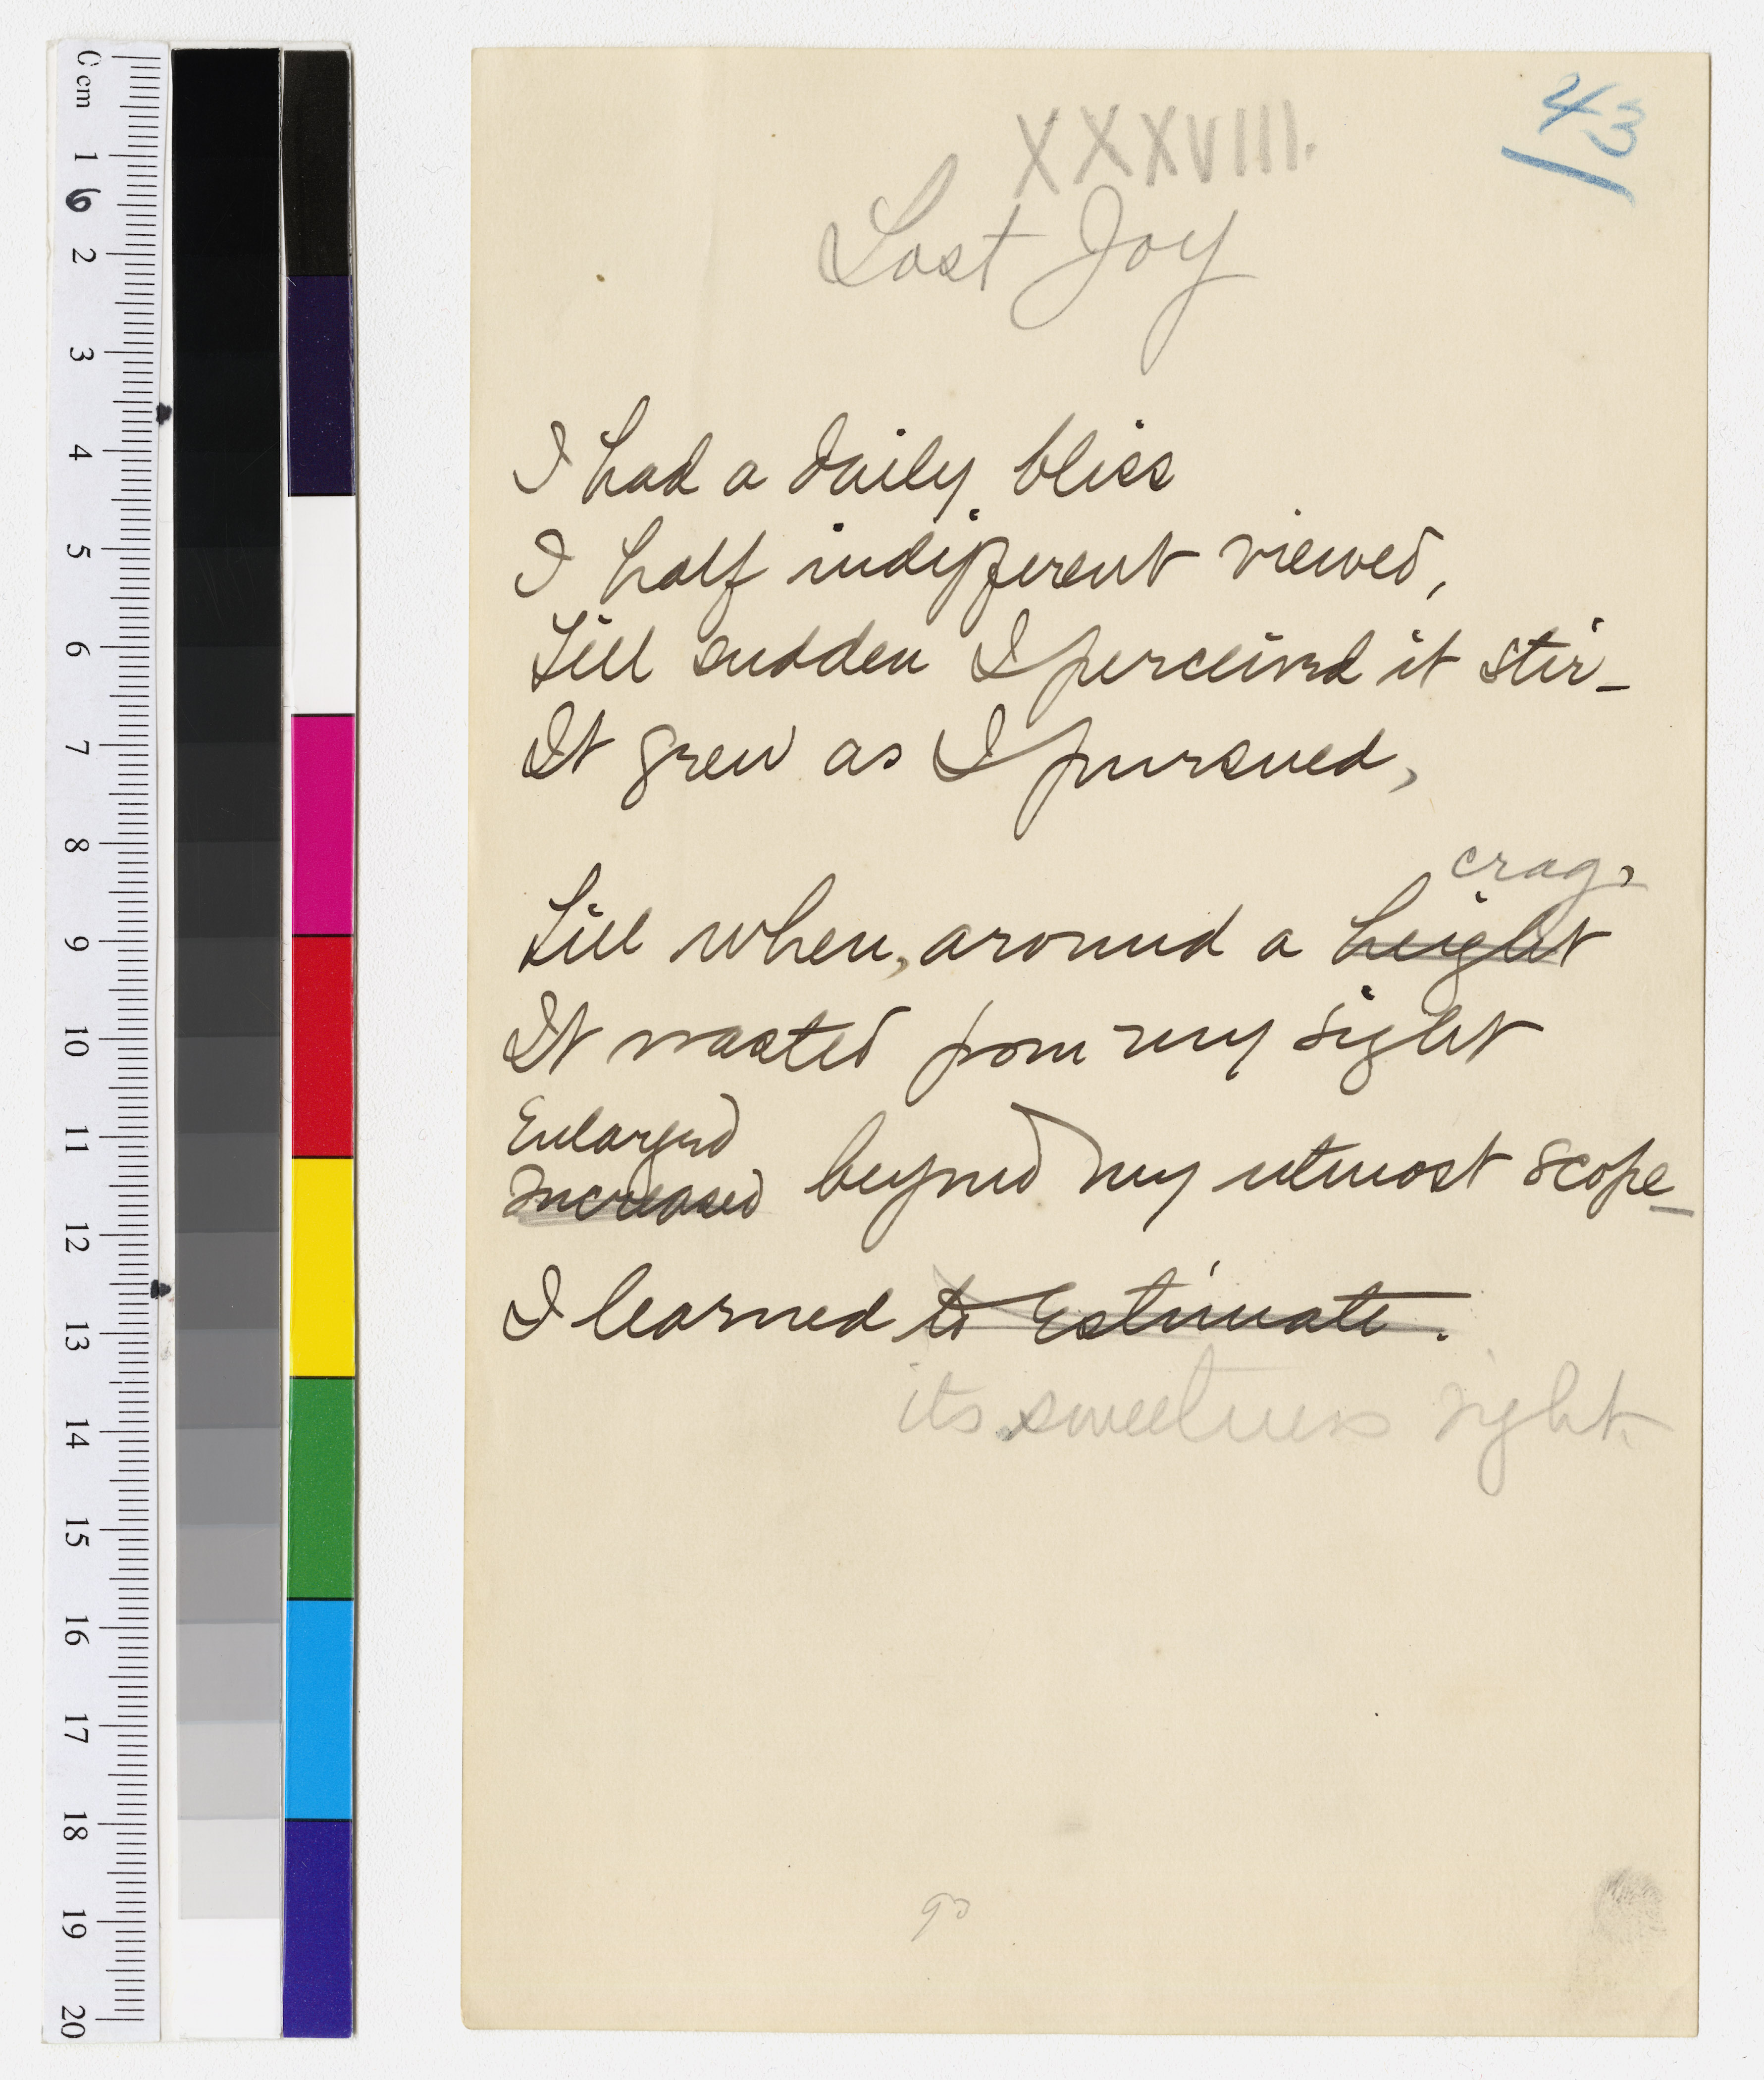 XXXVIII.
43
Lost Joy
I had a daily bliss
I half indifferent viewed,
Till sudden I perceived it stir_
It grew as I pursued,
crag,
Till when, around a height
It wasted from my sight
Enlarged
Increased beyond my utmost scope_
I learned to Estimate.
its sweetness right.
90
0 cm
1
6
2
3
4
5
6
7
8
9
10
11
12
13
14
15
16
17
18
19
20